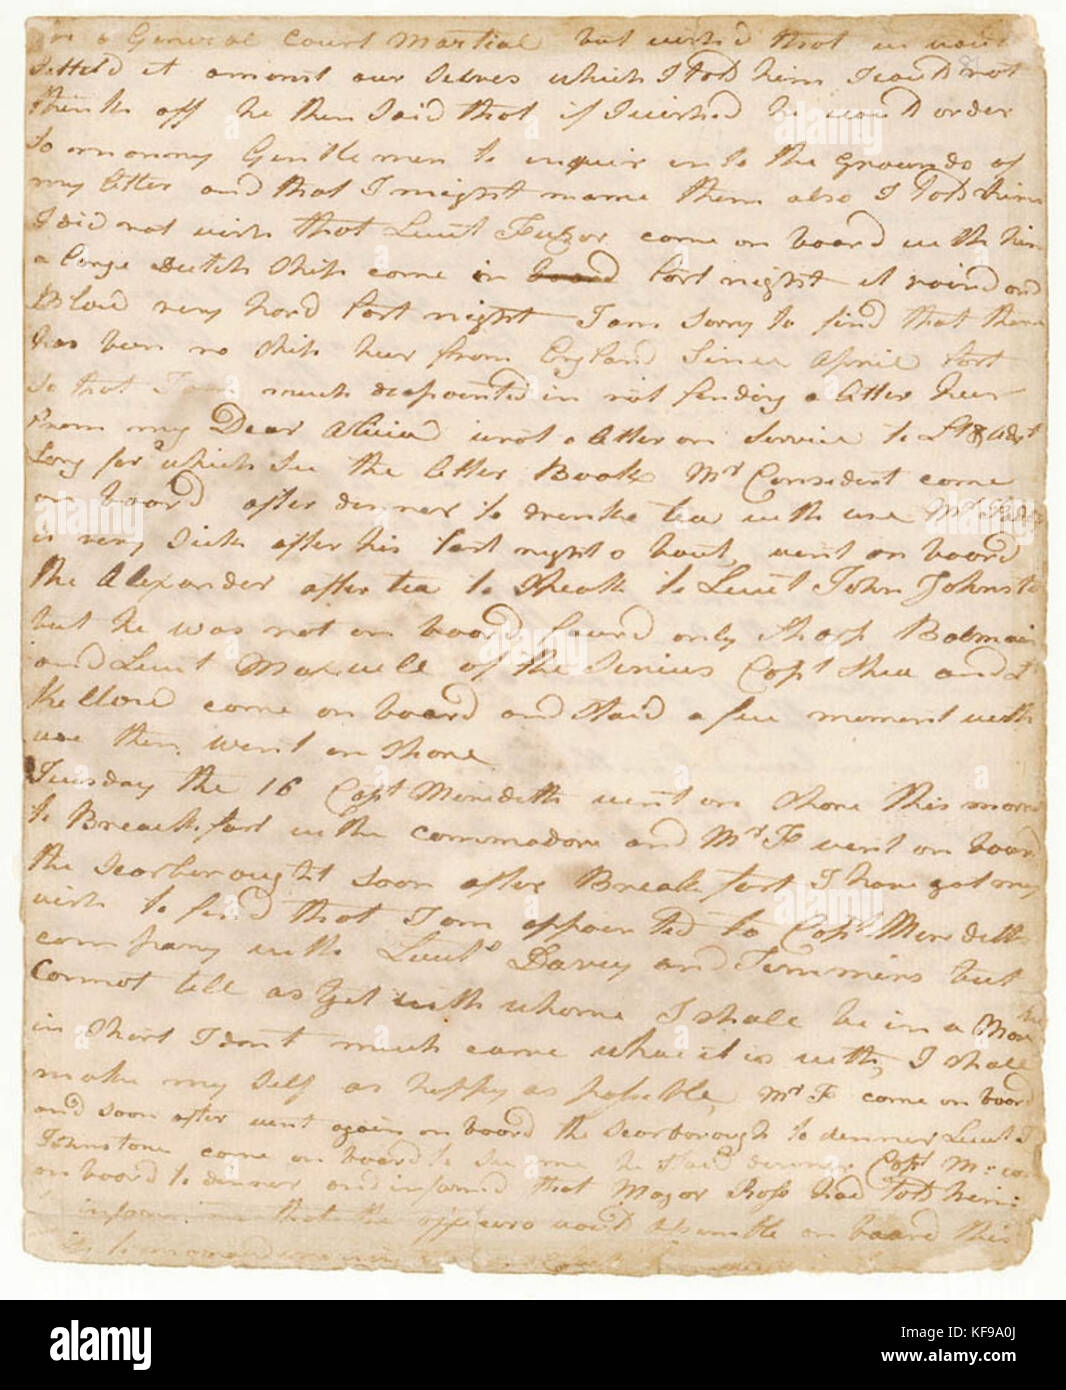 a General Court Martial but wish'd that we would
settled it amonst our selves which I told him I could not
think off he then Said that if I wished he would order
so maney Gentlemen to enquir into the Grounds of
my letter and that I might name them also I told him
I did not wish that Lieut Fuzor come on board with him
a large dutch Ship come in board last night it raind and
Blow'd very hard last night I am sorry to find that there
has been no Ship heer from England Since April last
So that I am much disapointed in not finding a letter heer
From my Dear wrot a letter on Service to
Long for which See the letter Book Mr Considect come
on board after dinner to drinke tea with use Mr
is very Sick after his last nights bout, went on board
the Alexander after tea to Speak to Lieut John Johnsto
but he was not on board found only Sharp Balmain
and Lieut Maxwell of the Sirius Capt Shea and Lt
Kellow come on board and Staid a few moment with
use then went on Shore
Tuesday the 16 Capt Meredith went on Shore this morn
to Breakfast with the Commodore and Mr F went on board
the Scarborought soon after Breakfast I have got my
wish to find that I am appointed to Capt Merediths
company with Lieuts Davey and Timmins but
Cannot tell as Yet with whome I Shall be in a
in Short I dont much care who it is with, I Shall
make my Self as happy as possible, Mr F come on board
and soon after went again on board the Scarborough to dinner Lieut J
Johnstone come on board to See me he Staid dinner Capt M
on board to dinner and informd that Major Ross had told him
inform me that the officers would assemble on board this
to
a
alamy
Image ID: KF9A0J
www.alamy.com